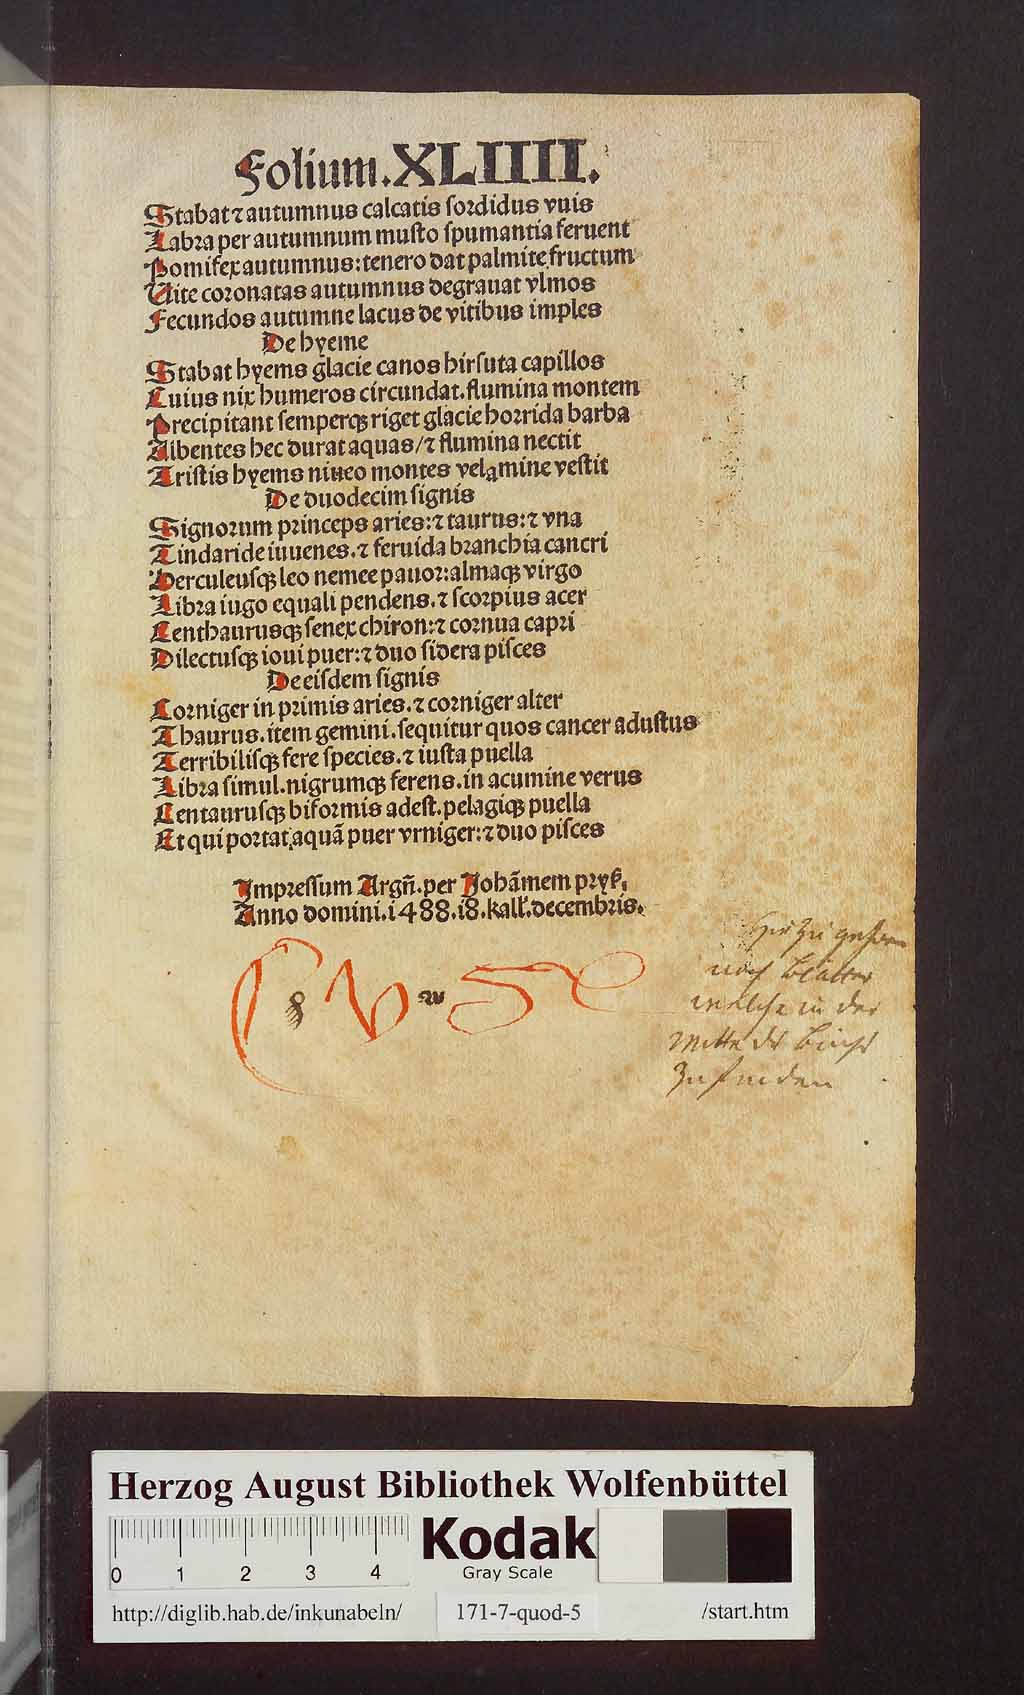 Folium.XLIIII.
Stabat ⁊ autumnus calcatis sordidus vuis
Labra per autumnum musto spumantia feruent
Pomifex autumnus: tenero dat palmite fructum
Uite coronatas autumnus degrauat vlmos
Fecundos autumne lacus de vitibus imples
De hyeme
Stabat hyems glacie canos hirsuta capillos
Cuius nix humeros circundat. flumina montem
Precipitant semperqꝫ riget glacie horrida barba
Albentes hec durat aquas/⁊ flumina nectit
Tristis hyems niueo montes velamine vestit
De duodecim signis
Signorum princeps aries: ⁊ taurus: ⁊ vna
Tindaride iuuenes. ⁊ feruida branchia cancri
Herculeusqꝫ leo nemee pauor: almaqꝫ virgo
Libra iugo equali pendens. ⁊ scorpius acer
Centhaurusqꝫ senex chiron: ⁊ cornua capri
Dilectusqꝫ ioui puer: ⁊ duo sidera pisces
De eisdem signis
Corniger in primis aries. ⁊ corniger alter
Thaurus. item gemini. sequitur quos cancer adustus
Terribilisqꝫ fere species. ⁊ iusta puella
Libra simul. nigrumqꝫ ferens. in acumine verus
Centaurusqꝫ biformis adest. pelagiqꝫ puella
Et qui portat aquā puer vrniger: ⁊ duo pisces
Impressum Argn̄. per Johāmem pryß.
Anno domini. i488. i8. kall'. decembris.
Hier zu gehören
noch Blätter
welche in der
Mitte des Buchs
zu finden
Herzog August Bibliothek Wolfenbüttel
0 1 2 3 4
Kodak
Gray Scale
http://diglib.hab.de/inkunabeln/ 171-7-quod-5 /start.htm